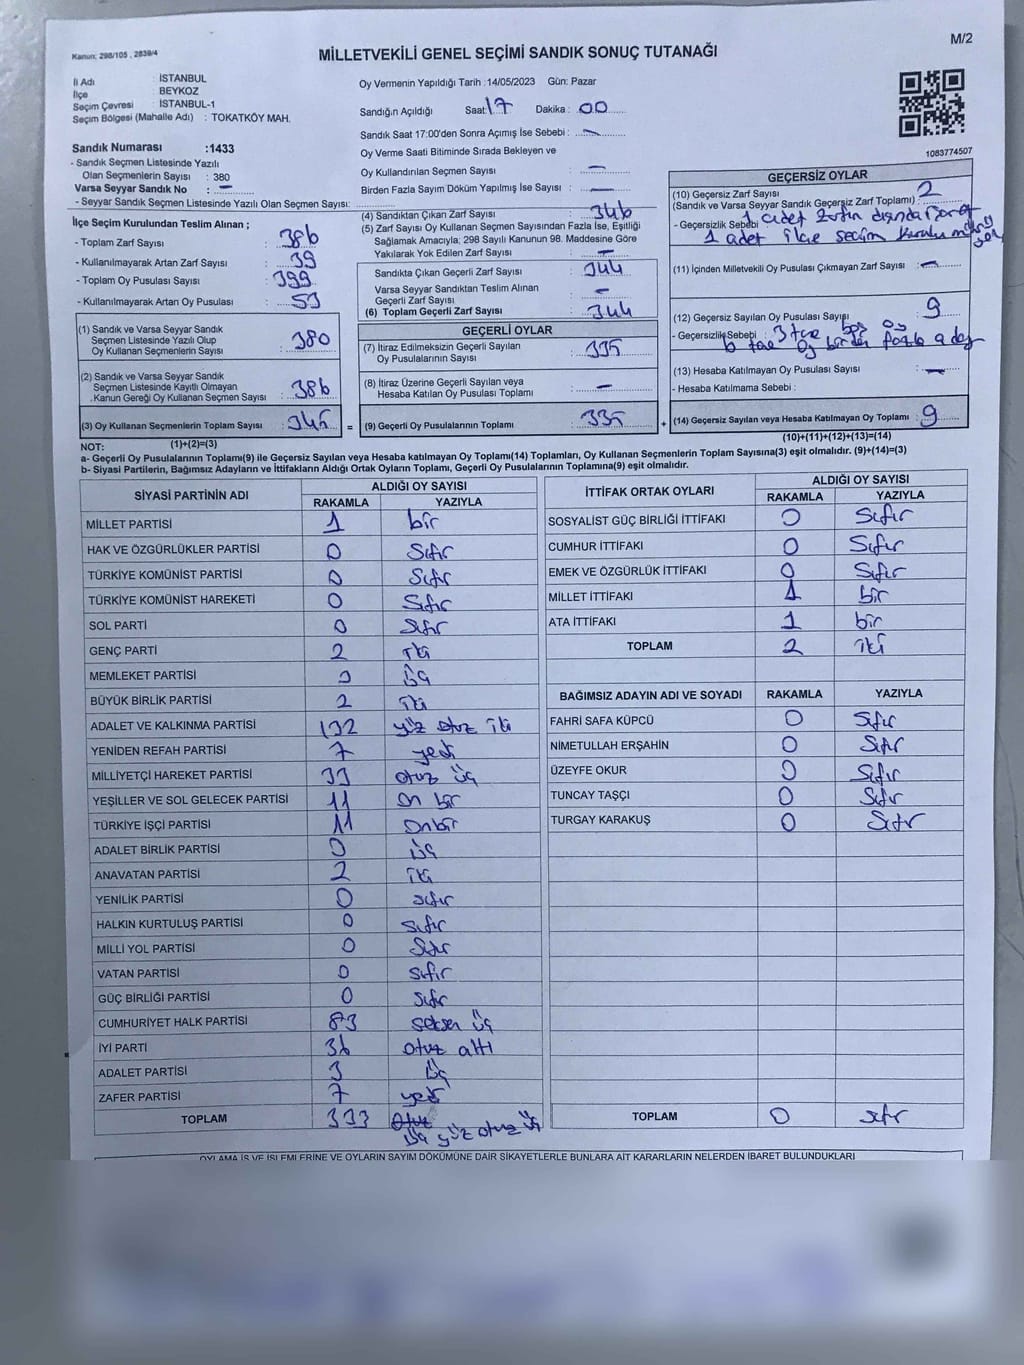 Kanun: 298/105 , 2839/4
MİLLETVEKİLİ GENEL SEÇİMİ SANDIK SONUÇ TUTANAĞI
M/2
İl Adı : İSTANBUL
İlçe : BEYKOZ
Seçim Çevresi : İSTANBUL-1
Seçim Bölgesi (Mahalle Adı) : TOKATKÖY MAH.
Sandık Numarası :1433
- Sandık Seçmen Listesinde Yazılı
Olan Seçmenlerin Sayısı : 380
Varsa Seyyar Sandık No : —
- Seyyar Sandık Seçmen Listesinde Yazılı Olan Seçmen Sayısı:
Oy Vermenin Yapıldığı Tarih :14/05/2023 Gün: Pazar
Sandığın Açıldığı Saat:17 Dakika : 00
Sandık Saat 17:00'den Sonra Açımış İse Sebebi : —
Oy Verme Saati Bitiminde Sırada Bekleyen ve
Oy Kullandırılan Seçmen Sayısı : —
Birden Fazla Sayım Döküm Yapılmış İse Sayısı : —
1083774507
İlçe Seçim Kurulundan Teslim Alınan ;
- Toplam Zarf Sayısı : 386
- Kullanılmayarak Artan Zarf Sayısı : 39
- Toplam Oy Pusulası Sayısı : 399
- Kullanılmayarak Artan Oy Pusulası : 53
(1) Sandık ve Varsa Seyyar Sandık
Seçmen Listesinde Yazılı Olup
Oy Kullanan Seçmenlerin Sayısı : 380
(2) Sandık ve Varsa Seyyar Sandık
Seçmen Listesinde Kayıtlı Olmayan
Kanun Gereği Oy Kullanan Seçmen Sayısı : 386
(3) Oy Kullanan Seçmenlerin Toplam Sayısı : 345 =
(1)+(2)=(3)
(4) Sandıktan Çıkan Zarf Sayısı : 346
(5) Zarf Sayısı Oy Kullanan Seçmen Sayısından Fazla İse, Eşitliği
Sağlamak Amacıyla; 298 Sayılı Kanunun 98. Maddesine Göre
Yakılarak Yok Edilen Zarf Sayısı : —
Sandıkta Çıkan Geçerli Zarf Sayısı : 344
Varsa Seyyar Sandıktan Teslim Alınan
Geçerli Zarf Sayısı : —
(6) Toplam Geçerli Zarf Sayısı : 344
GEÇERLİ OYLAR
(7) İtiraz Edilmeksizin Geçerli Sayılan
Oy Pusulalarının Sayısı : 335
(8) İtiraz Üzerine Geçerli Sayılan veya
Hesaba Katılan Oy Pusulası Toplamı : —
(9) Geçerli Oy Pusulalarının Toplamı : 335 +
GEÇERSİZ OYLAR
(10) Geçersiz Zarf Sayısı
(Sandık ve Varsa Seyyar Sandık Geçersiz Zarf Toplamı) : 2
- Geçersizlik Sebebi : 1 adet zarfın dışında
1 adet ilçe seçim kurulu
(11) İçinden Milletvekili Oy Pusulası Çıkmayan Zarf Sayısı : —
(12) Geçersiz Sayılan Oy Pusulası Sayısı : 9
- Geçersizlik Sebebi : 3 tane boş oy
6 tane birden fazla
(13) Hesaba Katılmayan Oy Pusulası Sayısı : —
- Hesaba Katılmama Sebebi :
(14) Geçersiz Sayılan veya Hesaba Katılmayan Oy Toplamı : 9
(10)+(11)+(12)+(13)=(14)
NOT:
a- Geçerli Oy Pusulasının Toplamı(9) ile Geçersiz Sayılan veya Hesaba Katılmayan Oy Toplamı(14) Toplamları, Oy Kullanan Seçmenlerin Toplam Sayısına(3) eşit olmalıdır. (9)+(14)=(3)
b- Siyasi Partilerin, Bağımsız Adayların ve İttifakların Aldığı Ortak Oyların Toplamı, Geçerli Oy Pusulalarının Toplamına(9) eşit olmalıdır.
SİYASİ PARTİNİN ADI ALDIĞI OY SAYISI
RAKAMLA YAZIYLA
MİLLET PARTİSİ 1 bir
HAK VE ÖZGÜRLÜKLER PARTİSİ 0 Sıfır
TÜRKİYE KOMÜNİST PARTİSİ 0 Sıfır
TÜRKİYE KOMÜNİST HAREKETİ 0 Sıfır
SOL PARTİ 0 Sıfır
GENÇ PARTİ 2 iki
MEMLEKET PARTİSİ 3 üç
BÜYÜK BİRLİK PARTİSİ 2 iki
ADALET VE KALKINMA PARTİSİ 132 yüz otuz iki
YENİDEN REFAH PARTİSİ 7 yedi
MİLLİYETÇİ HAREKET PARTİSİ 33 otuz üç
YEŞİLLER VE SOL GELECEK PARTİSİ 11 on bir
TÜRKİYE İŞÇİ PARTİSİ 11 onbir
ADALET BİRLİK PARTİSİ 3 üç
ANAVATAN PARTİSİ 2 iki
YENİLİK PARTİSİ 0 sıfır
HALKIN KURTULUŞ PARTİSİ 0 sıfır
MİLLİ YOL PARTİSİ 0 Sıfır
VATAN PARTİSİ 0 sıfır
GÜÇ BİRLİĞİ PARTİSİ 0 sıfır
CUMHURİYET HALK PARTİSİ 83 seksen üç
İYİ PARTİ 36 otuz altı
ADALET PARTİSİ 3 üç
ZAFER PARTİSİ 7 yedi
TOPLAM 333 otuz
üç yüz otuz üç
İTTİFAK ORTAK OYLARI ALDIĞI OY SAYISI
RAKAMLA YAZIYLA
SOSYALİST GÜÇ BİRLİĞİ İTTİFAKI 0 Sıfır
CUMHUR İTTİFAKI 0 Sıfır
EMEK VE ÖZGÜRLÜK İTTİFAKI 0 Sıfır
MİLLET İTTİFAKI 1 bir
ATA İTTİFAKI 1 bir
TOPLAM 2 iki
BAĞIMSIZ ADAYIN ADI VE SOYADI RAKAMLA YAZIYLA
FAHRİ SAFA KÜPCÜ 0 Sıfır
NİMETULLAH ERŞAHİN 0 Sıfır
ÜZEYFE OKUR 0 Sıfır
TUNCAY TAŞÇI 0 Sıfır
TURGAY KARAKUŞ 0 Sıfır
TOPLAM 0 sıfır
OYLAMA İŞ VE İŞLEMLERİNE VE OYLARIN SAYIM DÖKÜMÜNE DAİR ŞİKAYETLERLE BUNLARA AİT KARARLARIN NELERDEN İBARET BULUNDUKLARI